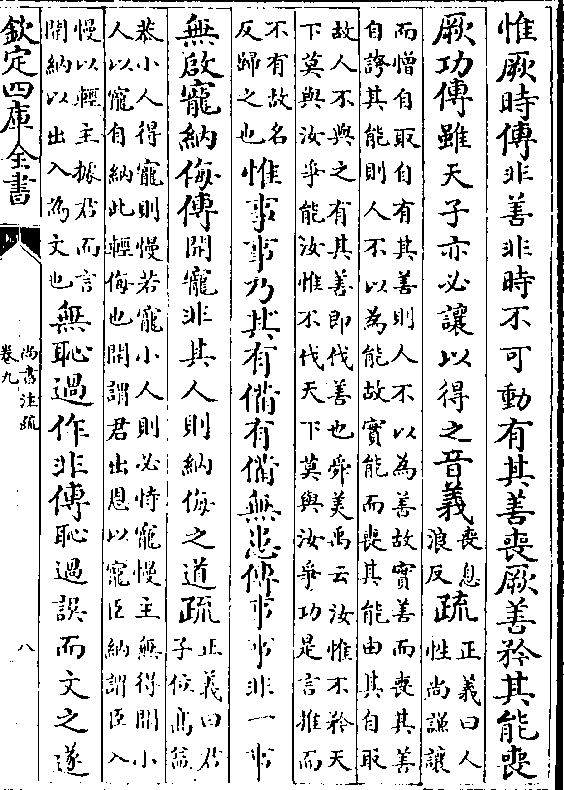 惟厥時傳非善非時不可動有其善喪厥善矜其能喪
厥功傳雖天子亦必讓以得之音義
喪息
浪反
疏
正義曰人
性尚謙讓
而憎自取自有其善則人不以為善故實善而喪其善
自誇其能則人不以為能故實能而喪其能由其自取
故人不與之有其善即伐善也舜美禹云汝惟不矜天
下莫與汝爭能汝惟不伐天下莫與汝爭功是言推而
不有故名
反歸之也
惟事事乃其有備有備無患傳事事非一事
無啟寵納侮傳開寵非其人則納侮之道疏
正義曰君
子位髙益
恭小人得寵則慢若寵小人則必恃寵慢主無得開小
人以寵自納此輕侮也開謂君出恩以寵臣納謂臣入
慢以輕主據君而言
開納以出入為文也
無恥過作非傳恥過誤而文之遂
欽定四庫全書
尚書注疏
卷九
八